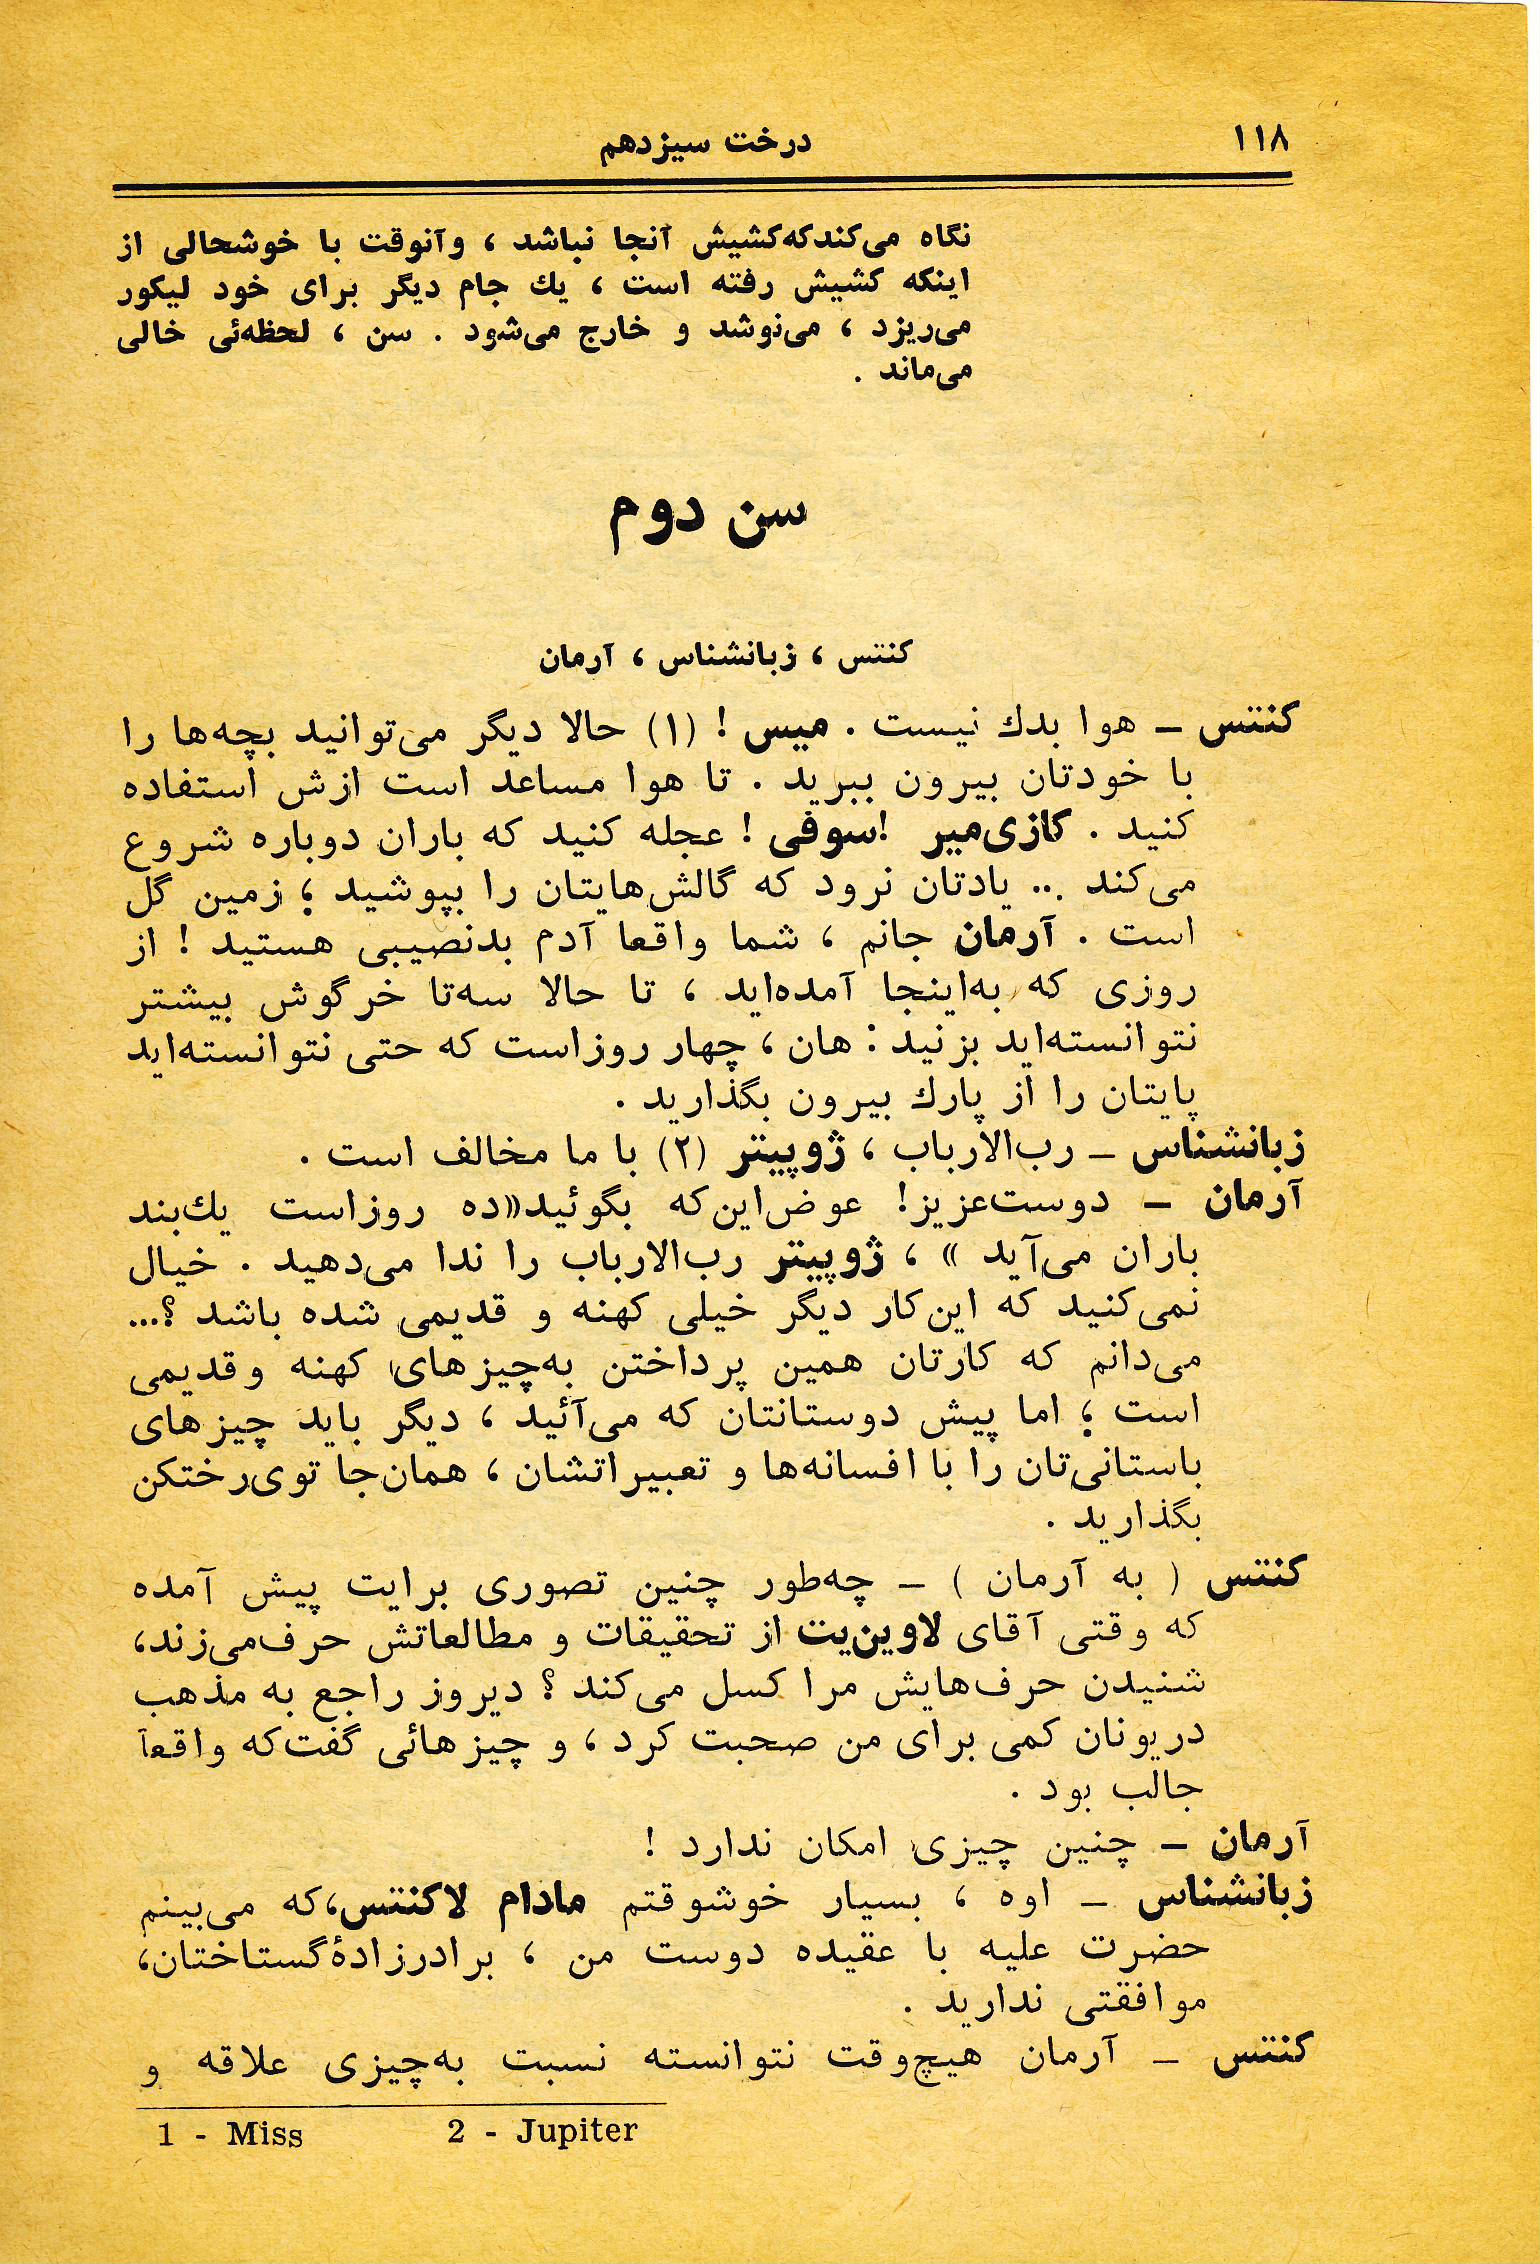 ۱۱۸
درخت سیزدهم
نگاه می‌کندکه‌کشیش آنجا نباشد ، وآنوقت با خوشحالی از
اینکه کشیش رفته است ، یك جام دیگر برای خود لیکور
می‌ریزد ، می‌نوشد و خارج می‌شود . سن ، لحظه‌ئی خالی
می‌ماند .
سن دوم
کنتس ، زبانشناس ، آرمان
کنتس – هوا بدك نیست . میس ! (۱) حالا دیگر می‌توانید بچه‌ها را
با خودتان بیرون ببرید . تا هوا مساعد است ازش استفاده
کنید . کازی‌میر !سوفی ! عجله کنید که باران دوباره شروع
می‌کند ... یادتان نرود که گالش‌هایتان را بپوشید ؛ زمین گل
است . آرمان جانم ، شما واقعا آدم بدنصیبی هستید ! از
روزی که به‌اینجا آمده‌اید ، تا حالا سه‌تا خرگوش بیشتر
نتوانسته‌اید بزنید : هان ، چهار روزاست که حتی نتوانسته‌اید
پایتان را از پارك بیرون بگذارید .
زبانشناس – رب‌الارباب ، ژوپیتر (۲) با ما مخالف است .
آرمان – دوست‌عزیز! عوض‌این‌که بگوئید«ده روزاست یك‌بند
باران می‌آید » ، ژوپیتر رب‌الارباب را ندا می‌دهید . خیال
نمی‌کنید که این‌کار دیگر خیلی کهنه و قدیمی شده باشد ؟...
می‌دانم که کارتان همین پرداختن به‌چیزهای کهنه وقدیمی
است ؛ اما پیش دوستانتان که می‌آئید ، دیگر باید چیزهای
باستانی‌تان را با افسانه‌ها و تعبیراتشان ، همان‌جا توی‌رختکن
بگذارید .
کنتس ( به آرمان ) – چه‌طور چنین تصوری برایت پیش آمده
که وقتی آقای لاوین‌یت از تحقیقات و مطالعاتش حرف‌می‌زند،
شنیدن حرف‌هایش مرا کسل می‌کند ؟ دیروز راجع به مذهب
دریونان کمی برای من صحبت کرد ، و چیزهائی گفت‌که واقعآ
جالب بود .
آرمان – چنین چیزی امکان ندارد !
زبانشناس – اوه ، بسیار خوشوقتم مادام لاکنتس،که می‌بینم
حضرت علیه با عقیده دوست من ، برادرزادهٔ‌گستاختان،
موافقتی ندارید .
کنتس – آرمان هیچ‌وقت نتوانسته نسبت به‌چیزی علاقه و
1 - Miss 2 - Jupiter